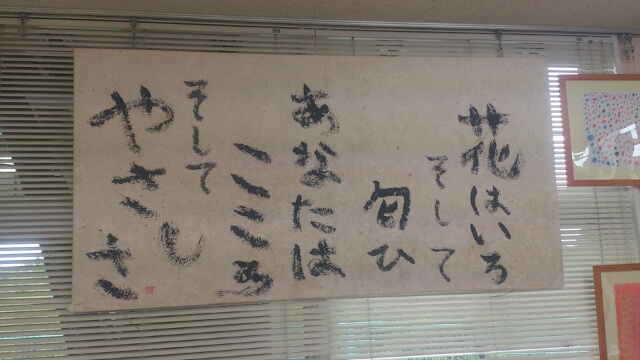 花はいろ
そして
匂ひ
あなたは
こころ
そして
やさしさ